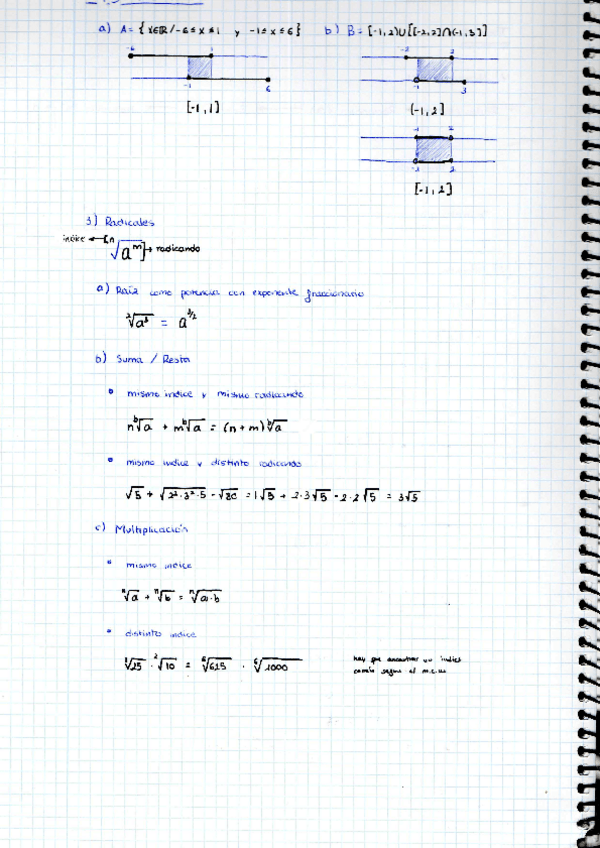 a) A = { x∈ℝ / -6 ≤ x ≤ 1 y -1 ≤ x ≤ 6 } b) B = [-1,2) ∪ [[-2,2] ∩ (-1,3]]
-6 1 -2 2
-1 6 -1 3
[-1,1] (-1,2]
-1 2
-1 2
[-1,2]
3) Radicales
índice ← [n √a^m] → radicando
a) Raíz como potencia con exponente fraccionario
²√a³ = a^3/2
b) Suma / Resta
• mismo índice y mismo radicando
n ᵇ√a + m ᵇ√a = (n+m) ᵇ√a
• mismo índice y distinto radicando
√5 + √2²·3²·5 - √80 = 1√5 + 2·3√5 - 2·2√5 = 3√5
c) Multiplicación
• mismo índice
ⁿ√a + ⁿ√b = ⁿ√a·b
• distinto índice
³√25 · ²√10 = ⁶√625 · ⁶√1000
hay que encontrar un índice
común según el m.c.m